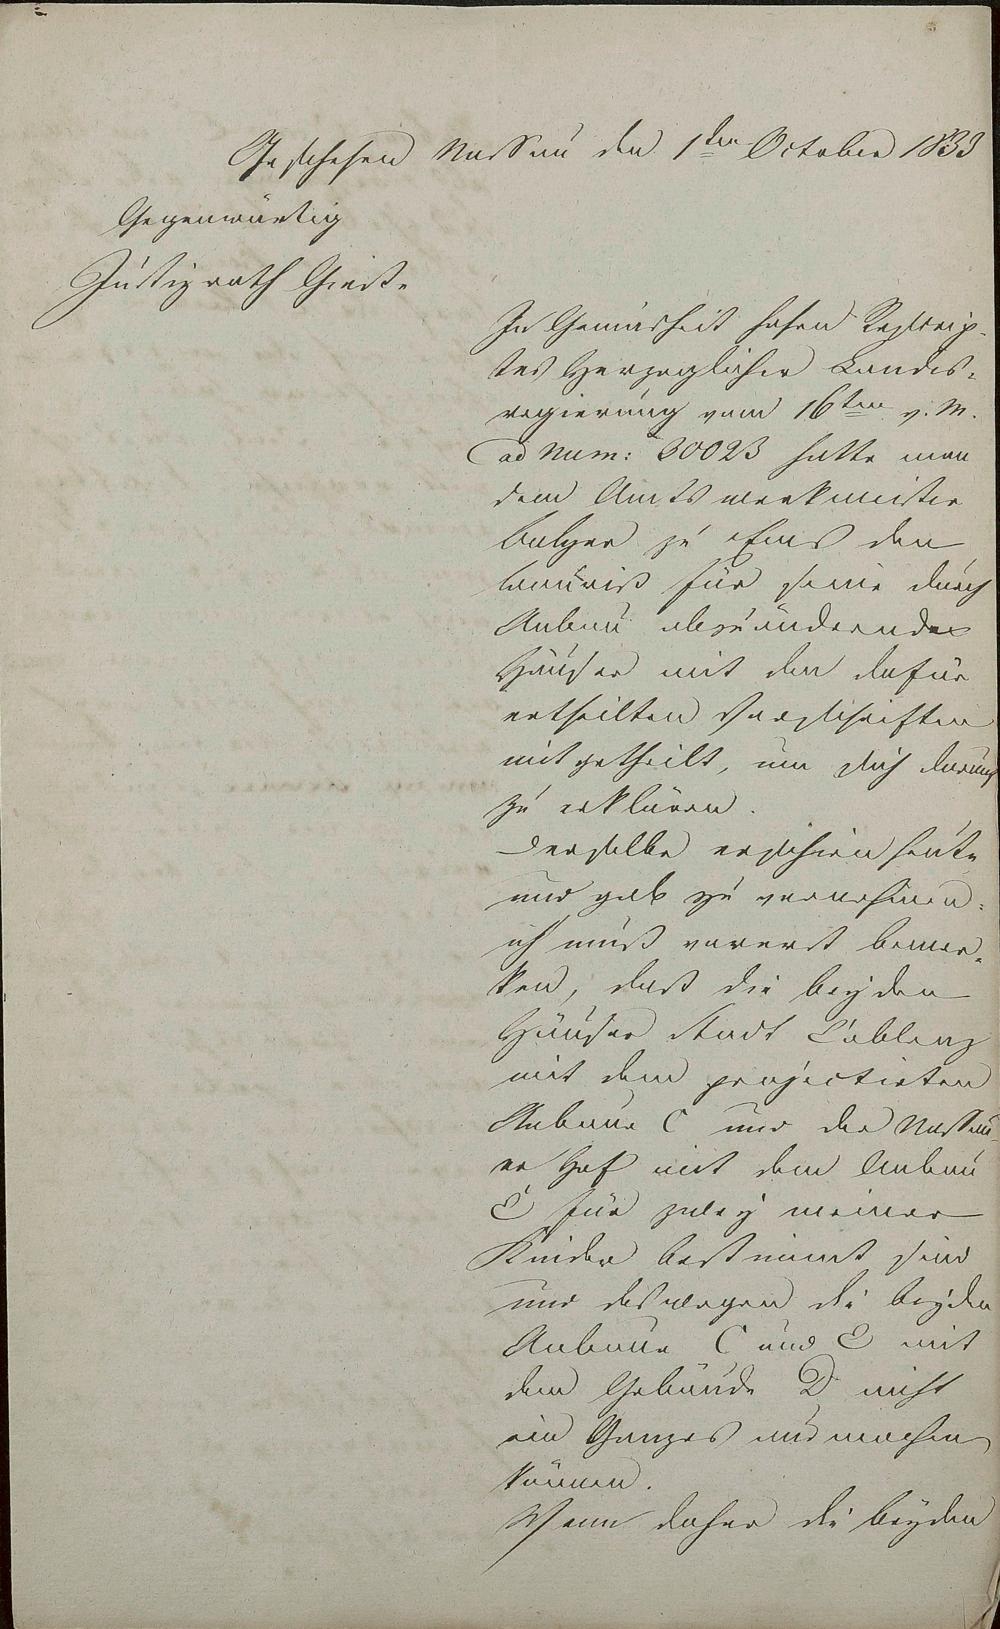 Geschehen Nassau den 1ten October 1833
Gegenwärtig
Justizrath Giesse
In Gemäsheit hohen Rescrip-
tes Herzoglicher Landes-
regierung vom 16ten v. M.
ad Num: 30023 hatte man
dem Amtswerkmeister
Balzer zu Ems den
Bauriß für seine durch
Anbau abzuändernde
Häuser mit den dafür
ertheilten Vorschriften
mitgetheilt, um sich darauf
zu erklären.
Derselbe erschien heute
und gab zu vernehmen:
ich muß vorerst bemer-
ken, daß die beyden
Häuser Stadt Coblenz
mit dem projectirten
Anbaue C und der Nassau-
er Hof mit dem Anbau
E für zwey meiner
Kinder bestimmt sind
und deswegen die beyden
Anbaue C und E mit
dem Gebäude D nicht
ein Ganzes ausmachen
können.
Wenn daher die beyden